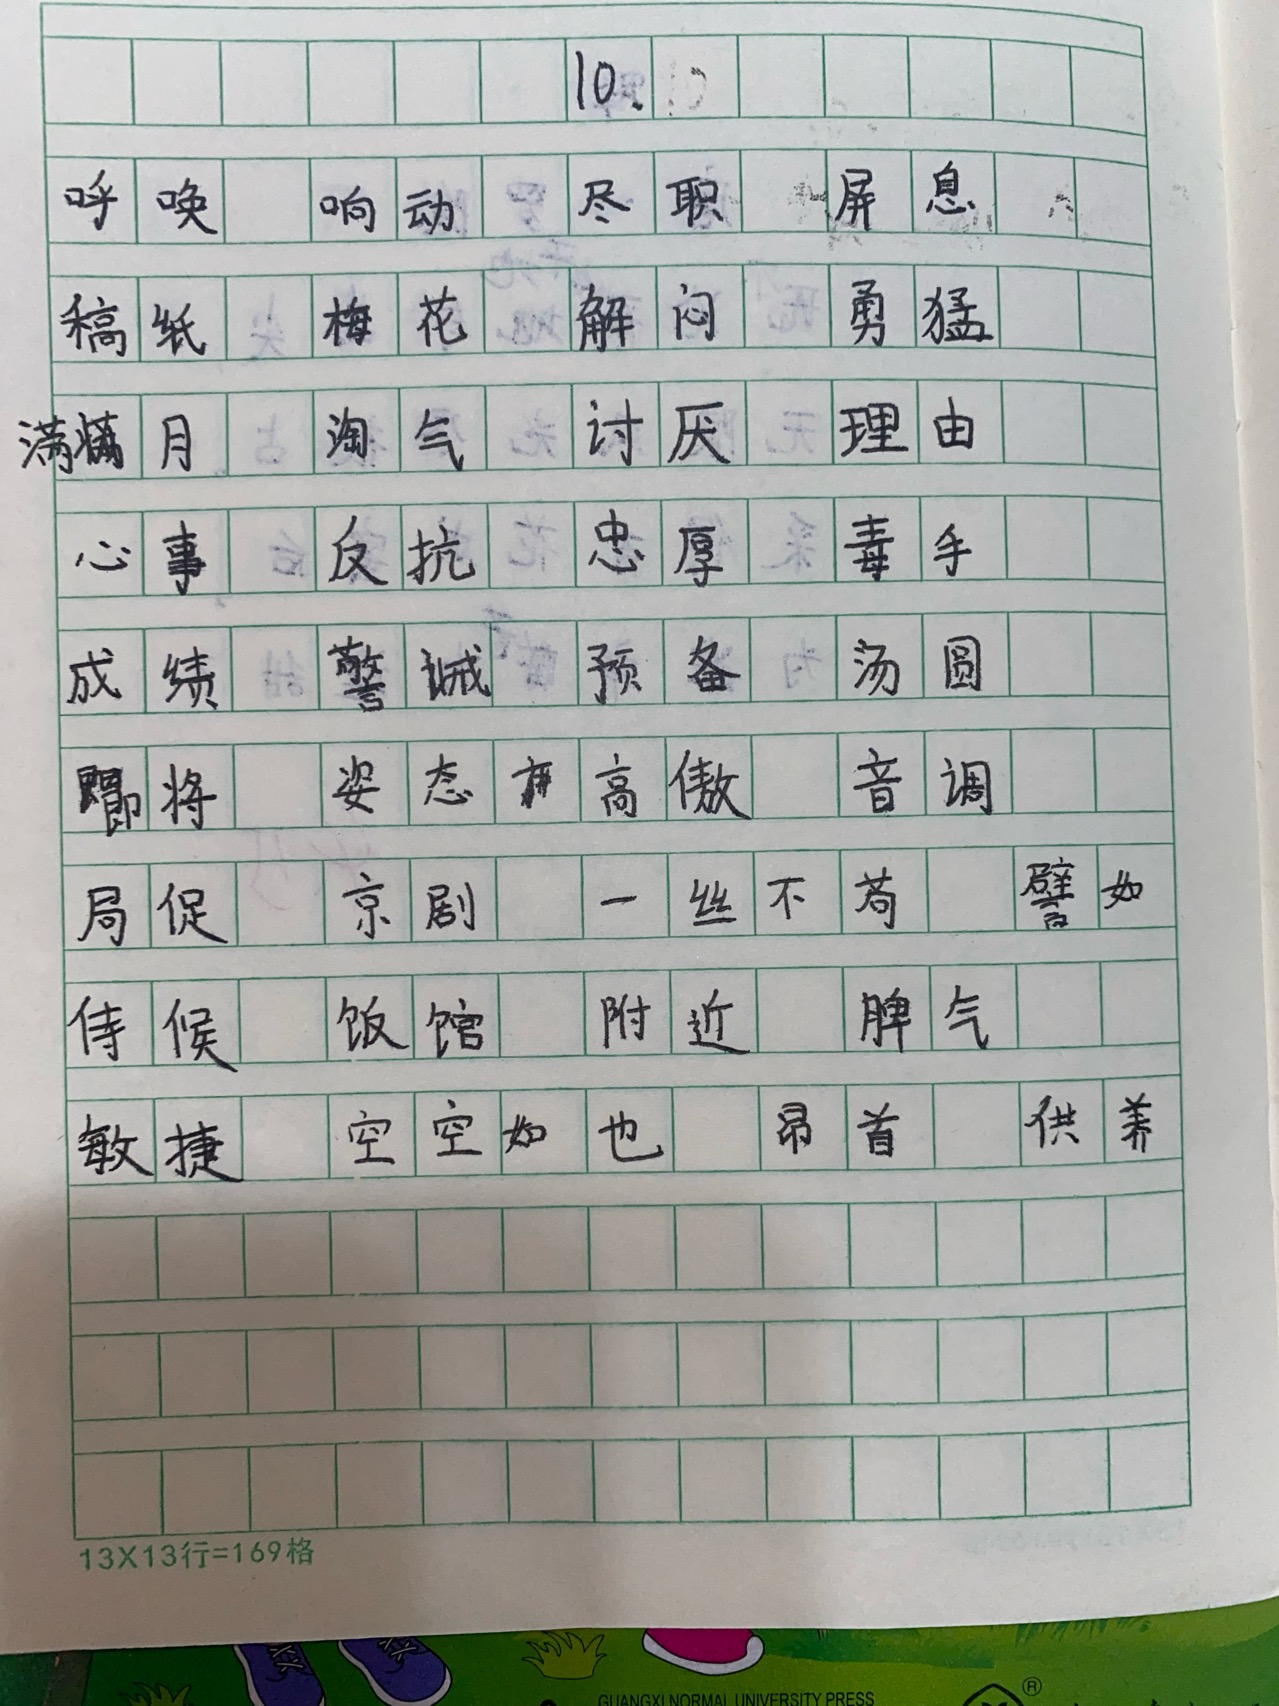 10.
呼唤 响动 尽职 屏息
稿纸 梅花 解闷 勇猛
满月 淘气 讨厌 理由
心事 反抗 忠厚 毒手
成绩 警诫 预备 汤圆
即将 姿态 高傲 音调
局促 京剧 一丝不苟 譬如
侍候 饭馆 附近 脾气
敏捷 空空如也 昂首 供养
13X13行=169格
GUANGXI NORMAL UNIVERSITY PRESS